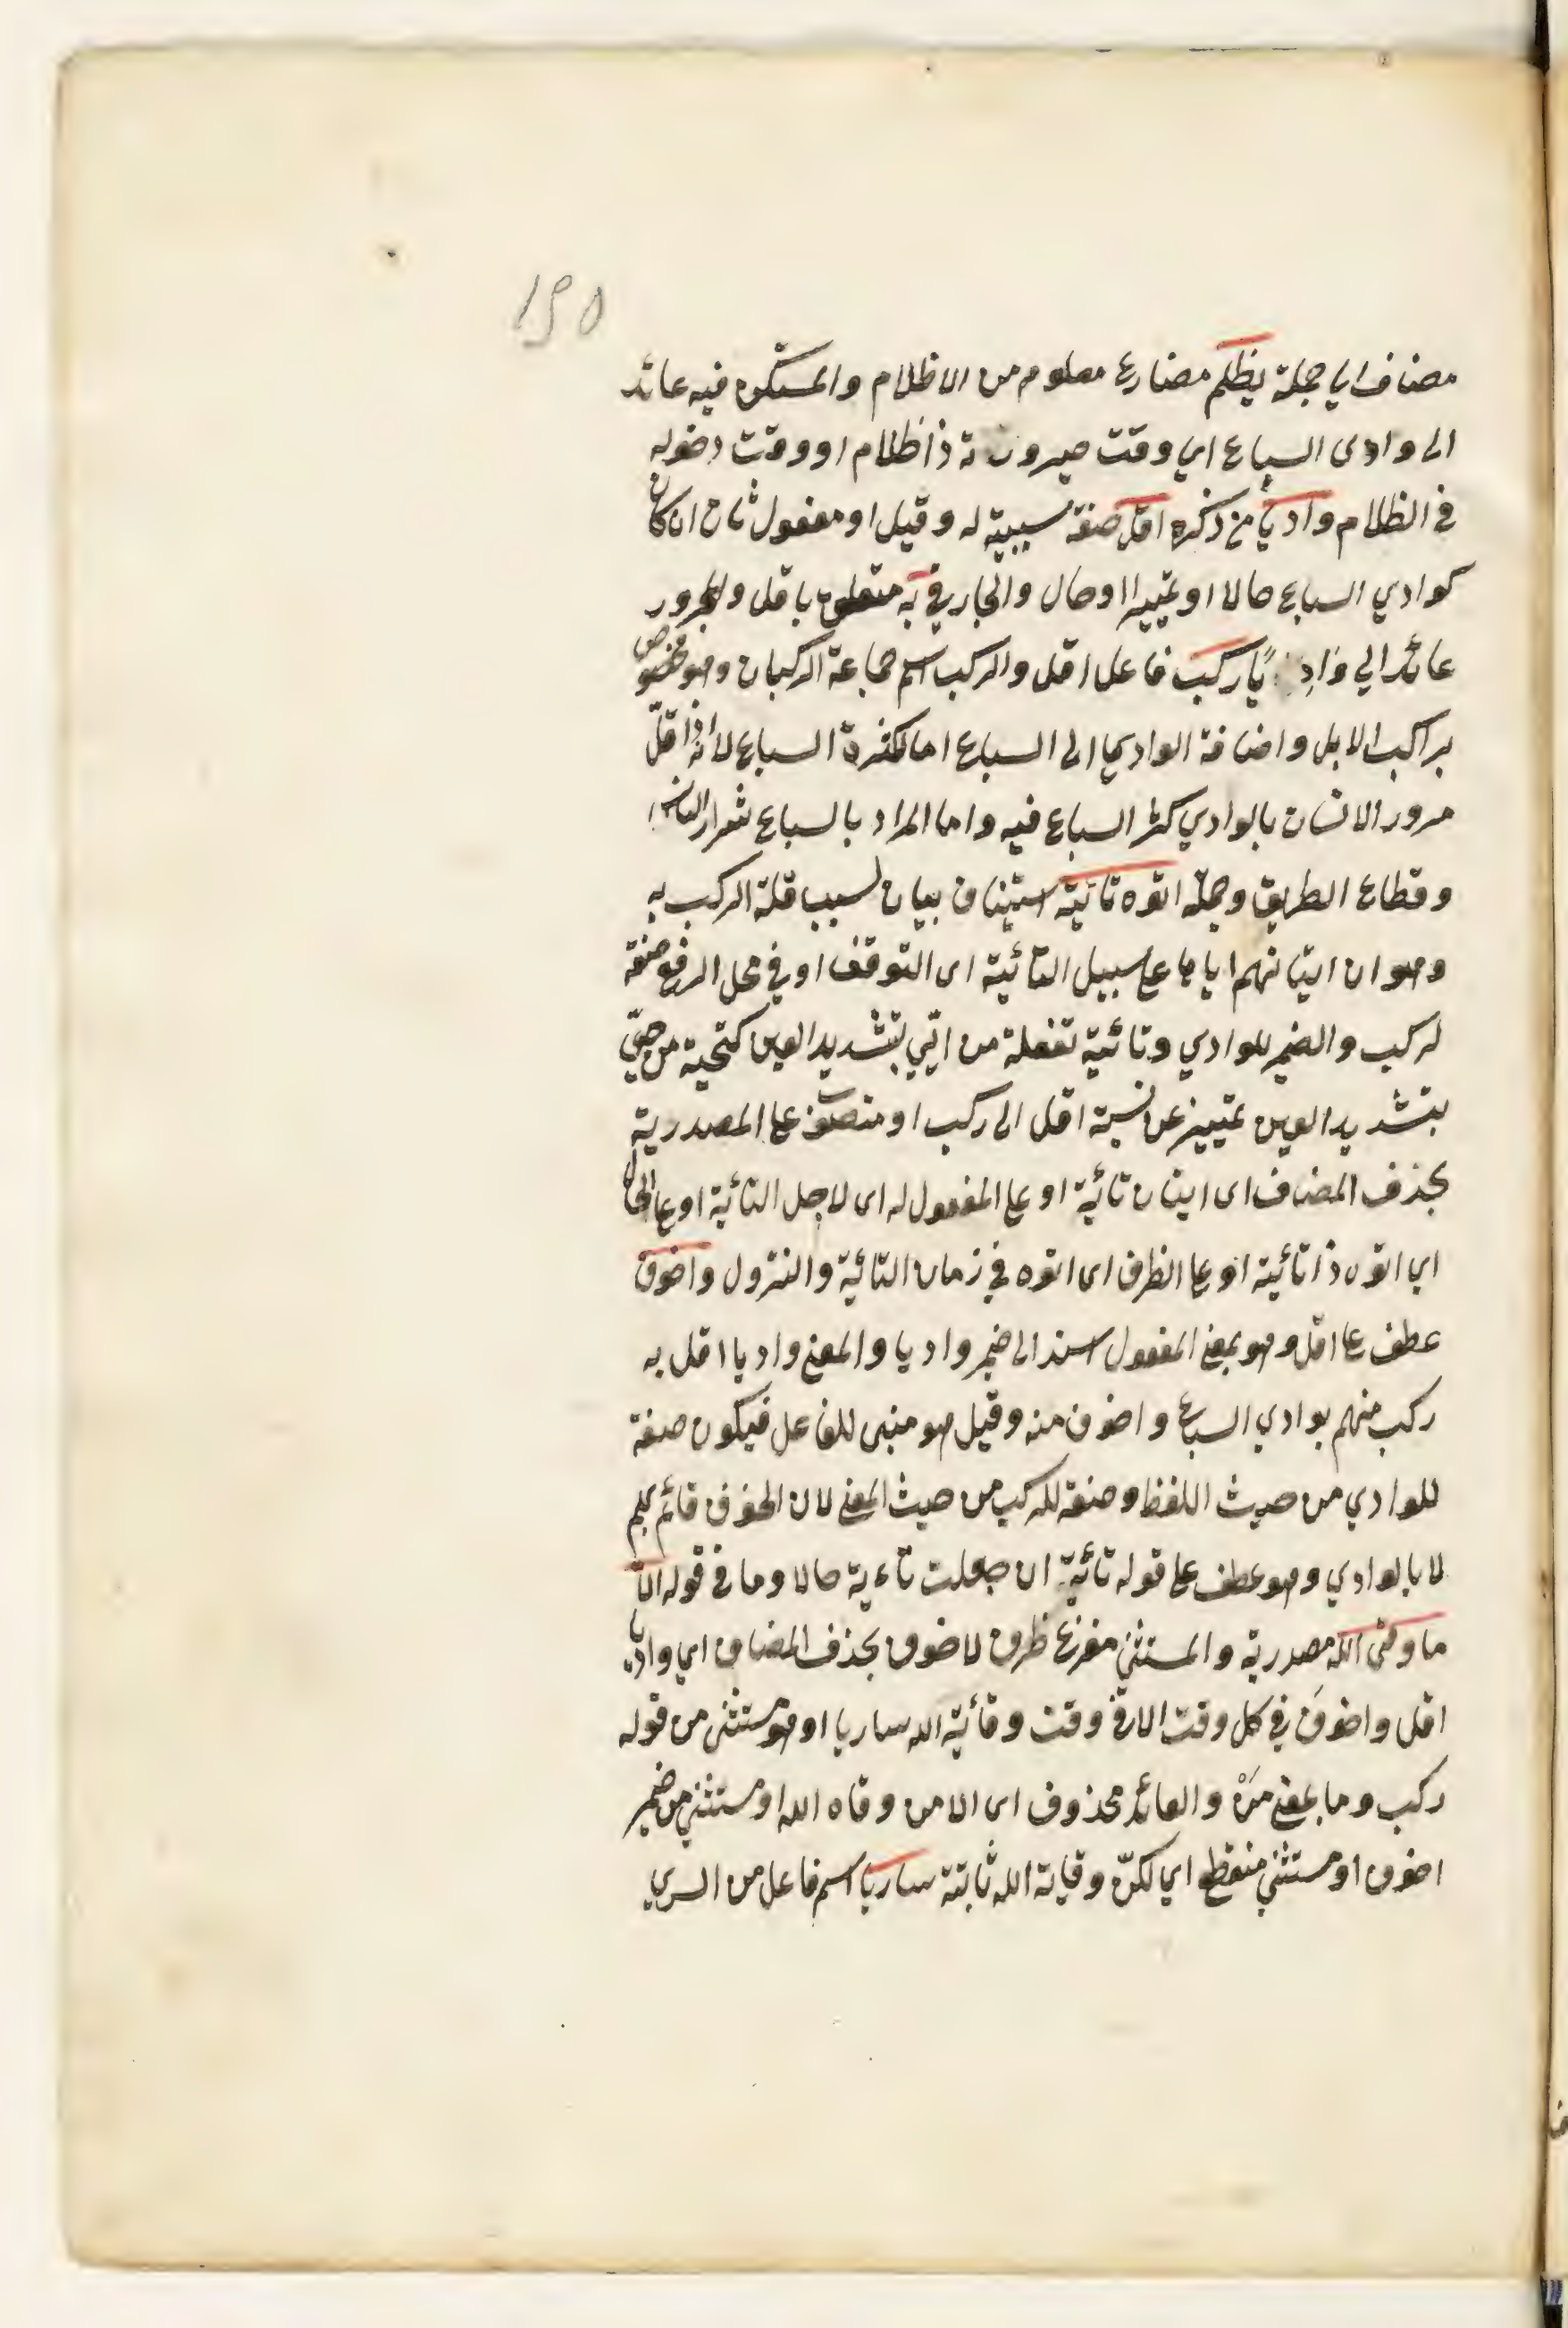 ١٢٥
مضاف الي جملة يظلم مضارع معلوم من الاظلام والمستكن فيه عائد
الى وادى السباع اي وقت صيرورته ذا ظلام او وقت دخوله
في الظلام وادياً مرّ ذكره اقلّ صفة سببية له وقيل او مفعول ثان ان كان
كوادي السباع حالا او تمييزا او حال والجار في به متعلق باقل والمجرور
عائد الي وادياً ركب فاعل اقل والركب اسم جماعة الركبان وهو مخصوص
براكب الابل واضافة الوادي الى السباع اما لكثرة السباع لانه اذا قلّ
مرور الانسان بالوادي كثر السباع فيه واما المراد بالسباع شرار الناس
وقطاع الطريق وجملة اتوه تائيّة استيناف بيان لسبب قلة الركب به
وهو ان اتيانهم اياها على سبيل التائية اى التوقف او في محل الرفع صفة
لركب والضمير للوادي وتائية تفعلة من اتيي بتشديد العين كتحية من حيّي
بتشديد العين تمييز عن نسبة اقل الى ركب او منصوب على المصدرية
بحذف المضاف اى اتيان تائية او على المفعول له اى لاجل التائية او على الحال
اي اتوه ذا تائية او على الظرف اى اتوه في زمان التائية والنزول واخوف
عطف على اقل وهو بمعنى المفعول اسند الى ضمير واديا والمعنى واديا اقل به
ركب منهم بوادي السباع واخوف منه وقيل هو مبنى للفاعل فيكون صفة
للوادي من حيث اللفظ وصفة للركب من حيث المعنى لان الخوف قائم بهم
لا بالوادي وهو عطف على قوله تائيّة ان جعلت تاءية حالا وما في قوله الاّ
ما وقى الله مصدرية والمستثنى مفرغ ظرف لاخوف بحذف المضاف اي واديا
اقل واخوف في كل وقت الا في وقت وقائية الله ساريا او هو مستثنى من قوله
ركب وما بمعنى مَنْ والعائد محذوف اى الا من وقاه الله او مستثنى من ضمير
اخوف او مستثنى منقطع اي لكنّ وقاية الله ثابتة ساريا اسم فاعل من السري